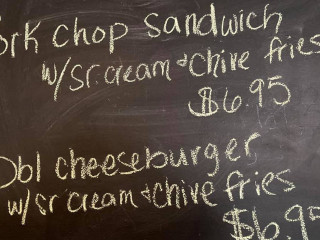 ork chop sandwich
w/sr. cream + Chive fries
$6.95
Dbl cheeseburger
w/sr cream + Chive fries
$6.9